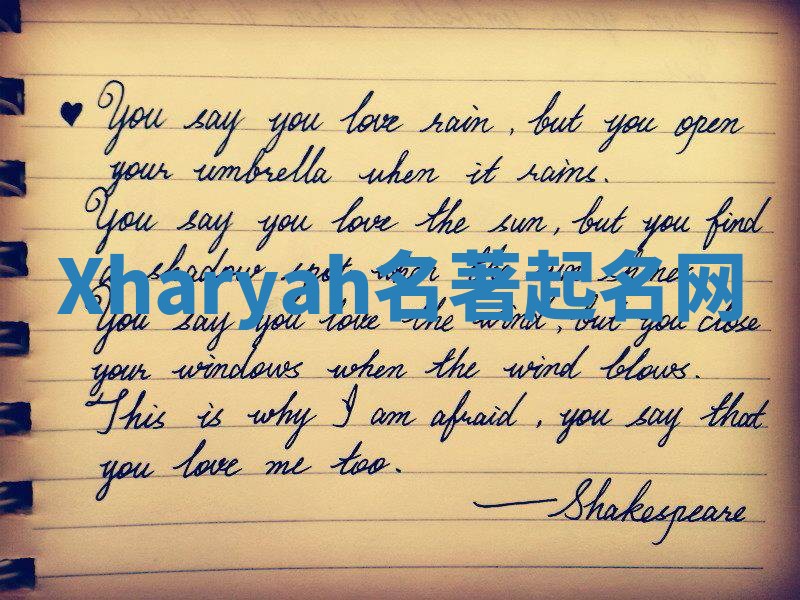 ♥ You say you love rain, but you open
your umbrella when it rains.
You say you love the sun, but you find
a shadow spot when the sun shines
Xharyah名著起名网
You say you love the wind, but you close
your windows when the wind blows.
This is why I am afraid, you say that
you love me too.
— Shakespeare